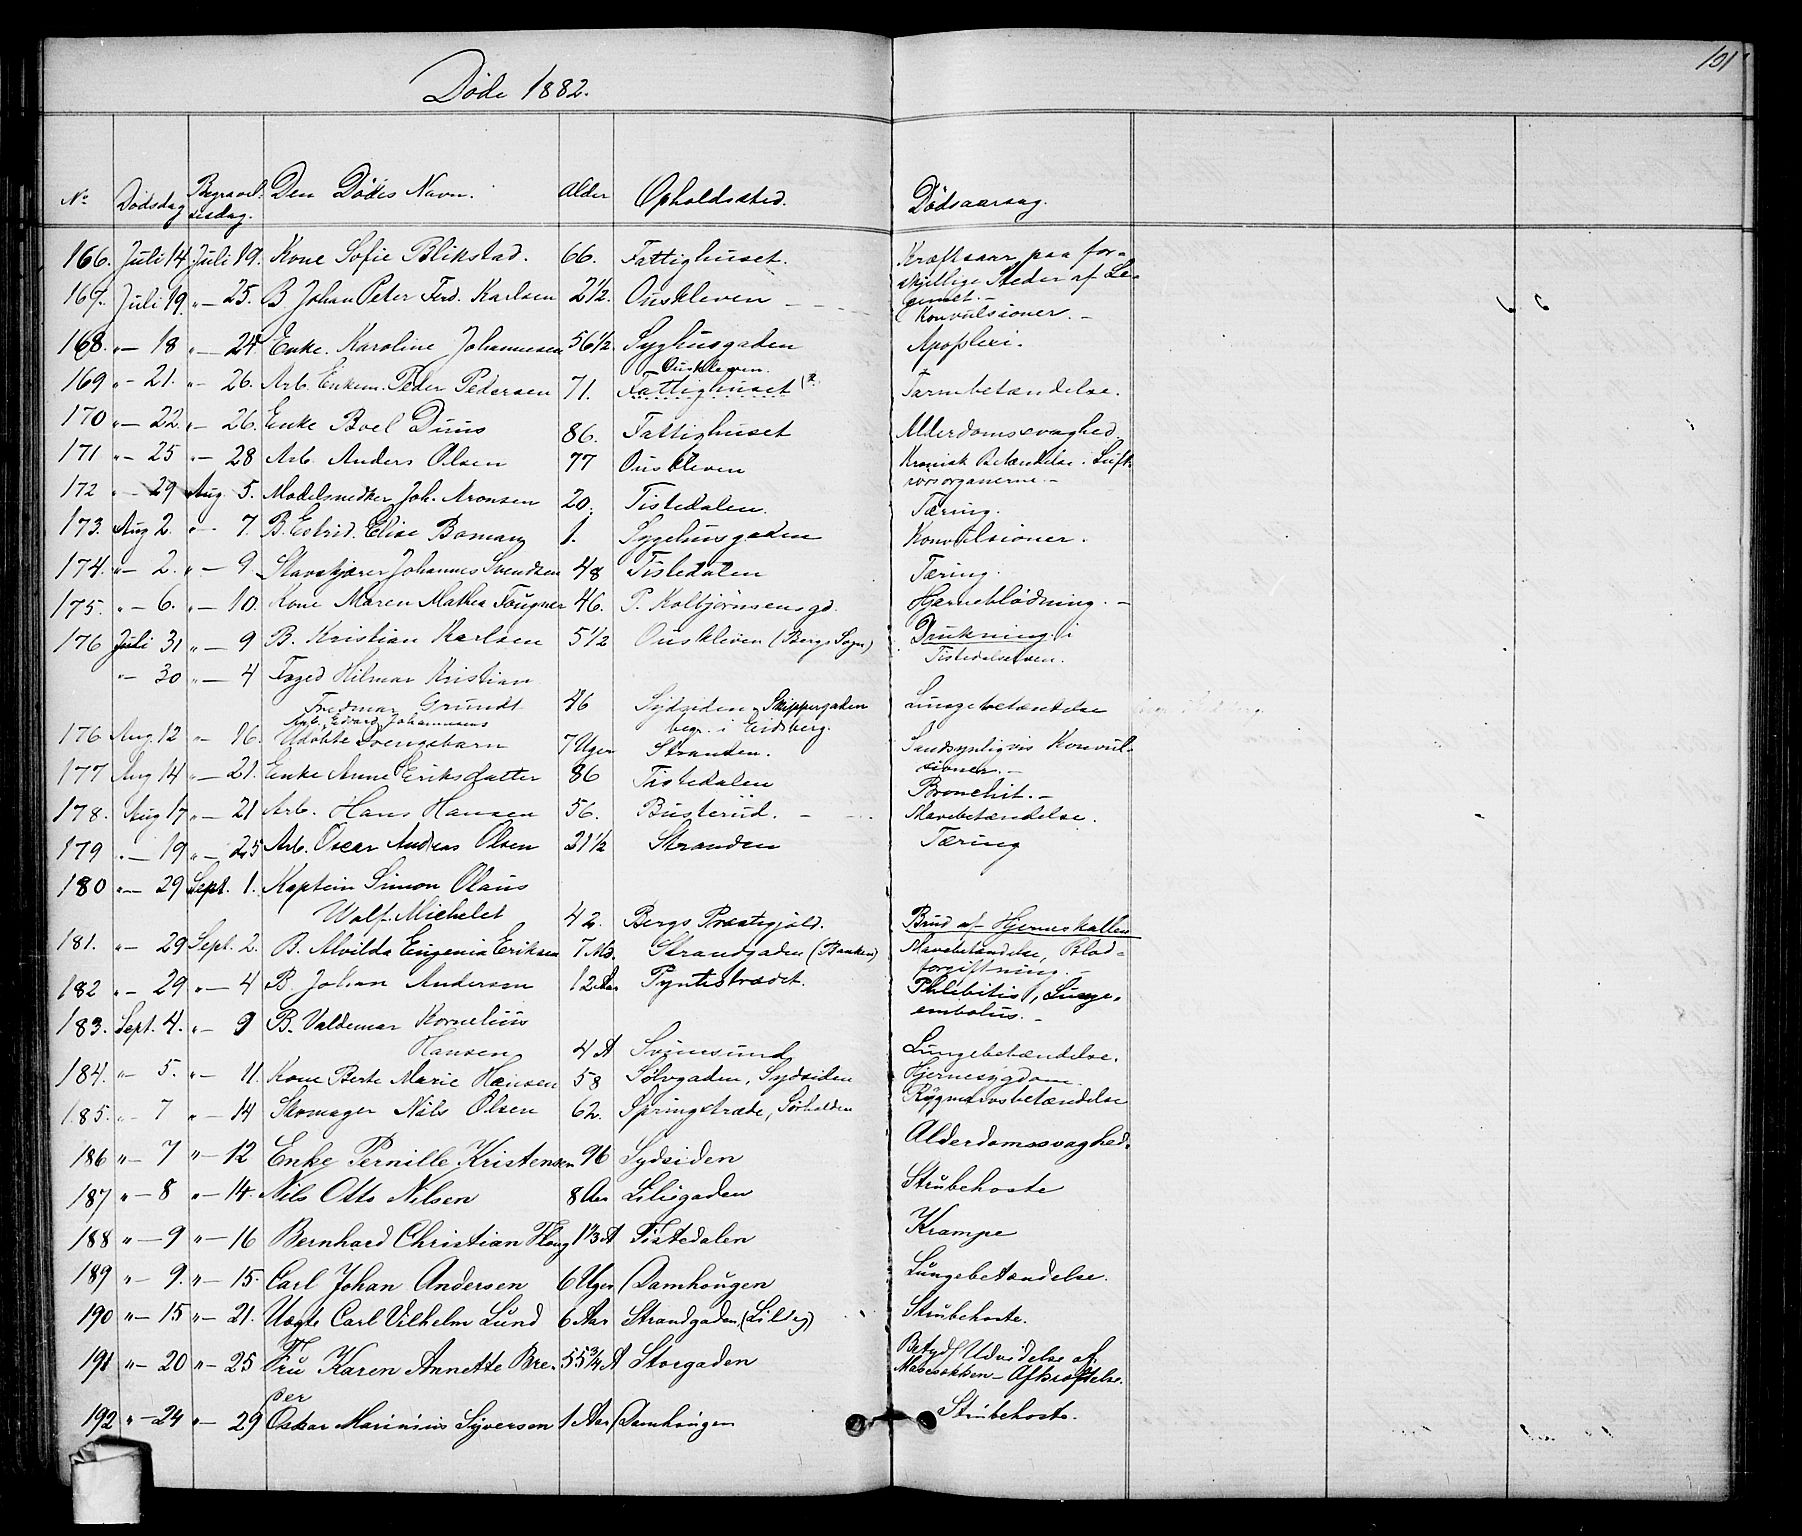 101
Døde 1882.
No Dødsdag Begravelsesdag. Den Dødes Navn. Alder Opholdssted. Dødsaarsag.
166. Juli 14 Juli 19. Kone Sofie Blikstad. 66. Fattighuset. Kræftsaar paa for-
skjellige Steder af Le-
gemet.
167. Juli 19. " — 25. B Johan Peter Ferd. Karlsen 2 1/2. Ouskleven — Konvulsioner. —
168. " — 18 " — 24. Enke. Karoline Johannesen 56 1/2 Syghusgaden Apoplexi.
Ouskleven.
169 " — 21. " — 26. Arb. Enkem. Peder Pedersen 71. Fattighuset Tarmbetændelse.
170 " — 22. " — 26. Enke Boel Duus 86. Fattighuset Alderdomssvaghed.
171 " — 25 " — 28 Arb. Anders Olsen 77 Ouskleven Kronisk Betændelse i Luft-
rørsorganerne. —
172 " — 29 Aug. 5. Modelsnedker Joh. Aronsen 20. Tistedalen. Tæring.
173. Aug 2. " — 7. B. Estrid Elise Boman 1. Sygehusgaden Konvulsioner.
174. " — 2. " — 9. Stavskjærer Johannes Svendsen 48 Tistedalen Tæring.
175. " — 6. " — 10. Kone Maren Mathea Fougner 46. P. Kolbjørnsensgd. Hjerneblødning. —
176 Juli 31 " — 9 B. Kristian Karlsen 5 1/2 Ouskleven (Bergs Sogn) Drukning i
Tistedalselven.
" — 30 " — 4 Foged Hilmar Kristian
Fredmar Grundt 46 Sydsiden, Skippergaden Lungebetændelse
begr. i Eidsberg.
Arb. Edvard Johannesens
176 Aug. 12 " — 16. Udøbte Drengebarn 7 Uger Stranden. Sandsynligvis Konvul-
sioner. —
177 Aug 14 " — 21. Enke Anne Eriksdatter 86 Tistedalen Bronchit. —
178. Aug 17 " — 21 Arb. Hans Hansen 56. Busterud. — Mavebetændelse.
179 " — 19 " — 25 Arb. Oscar Andreas Olsen 21 1/2 Stranden Tæring
180 " — 29 Sept. 1. Kaptein Simon Olaus
Wolf. Michelet 42. Bergs Præstegjeld. Brud af Hjerneskallen
181. " — 29 Sept. 2. B. Alvilda Eugenia Eriksen 7 Md. Strandgaden (Banken) Mavebetændelse, Blod-
forgiftning. —
182 " — 29 " — 4 B Johan Andersen 12 Aar Pyntestrædet. Phlebitis, Lunge-
embolus. —
183. Sept. 4. " — 9 B. Valdemar Kornelius
Hansen 4 A Svinesund Lungebetændelse.
184. " — 5. " — 11. Kone Berte Marie Hansen 58 Sølvgaden, Sydsiden Hjernesygdom.
185. " — 7 " — 14 Skomager Nils Olsen 62. Springstræde, Sørhalden Rygmarvsbetændelse
186 " — 7 " — 12 Enke Pernille Kristensen 96 Sydsiden Alderdomssvaghed.
187 " — 8 " — 14. Nils Otto Nilsen 8 Aar Liliegaden Strubehoste
188 " — 9 " — 16 Bernhard Christian Haug 1 3/4 A Tistedalen Krampe
189 " — 9. " — 15. Carl Johan Andersen 6 Uger Damhougen Lungebetændelse.
190 " — 15 " — 21. Uægte Carl Vilhelm Lund 6 Aar Strandgaden Strubehoste.
191 " — 20 " — 25 Fru Karen Annette Bre- 55 3/4 A Storgaden Betyd. Udvidelse af
der Mavesækken — Afkræftelse.
192 " — 24 " — 29 Oskar Marinius Syversen 1 Aar Damhougen Strubehoste.